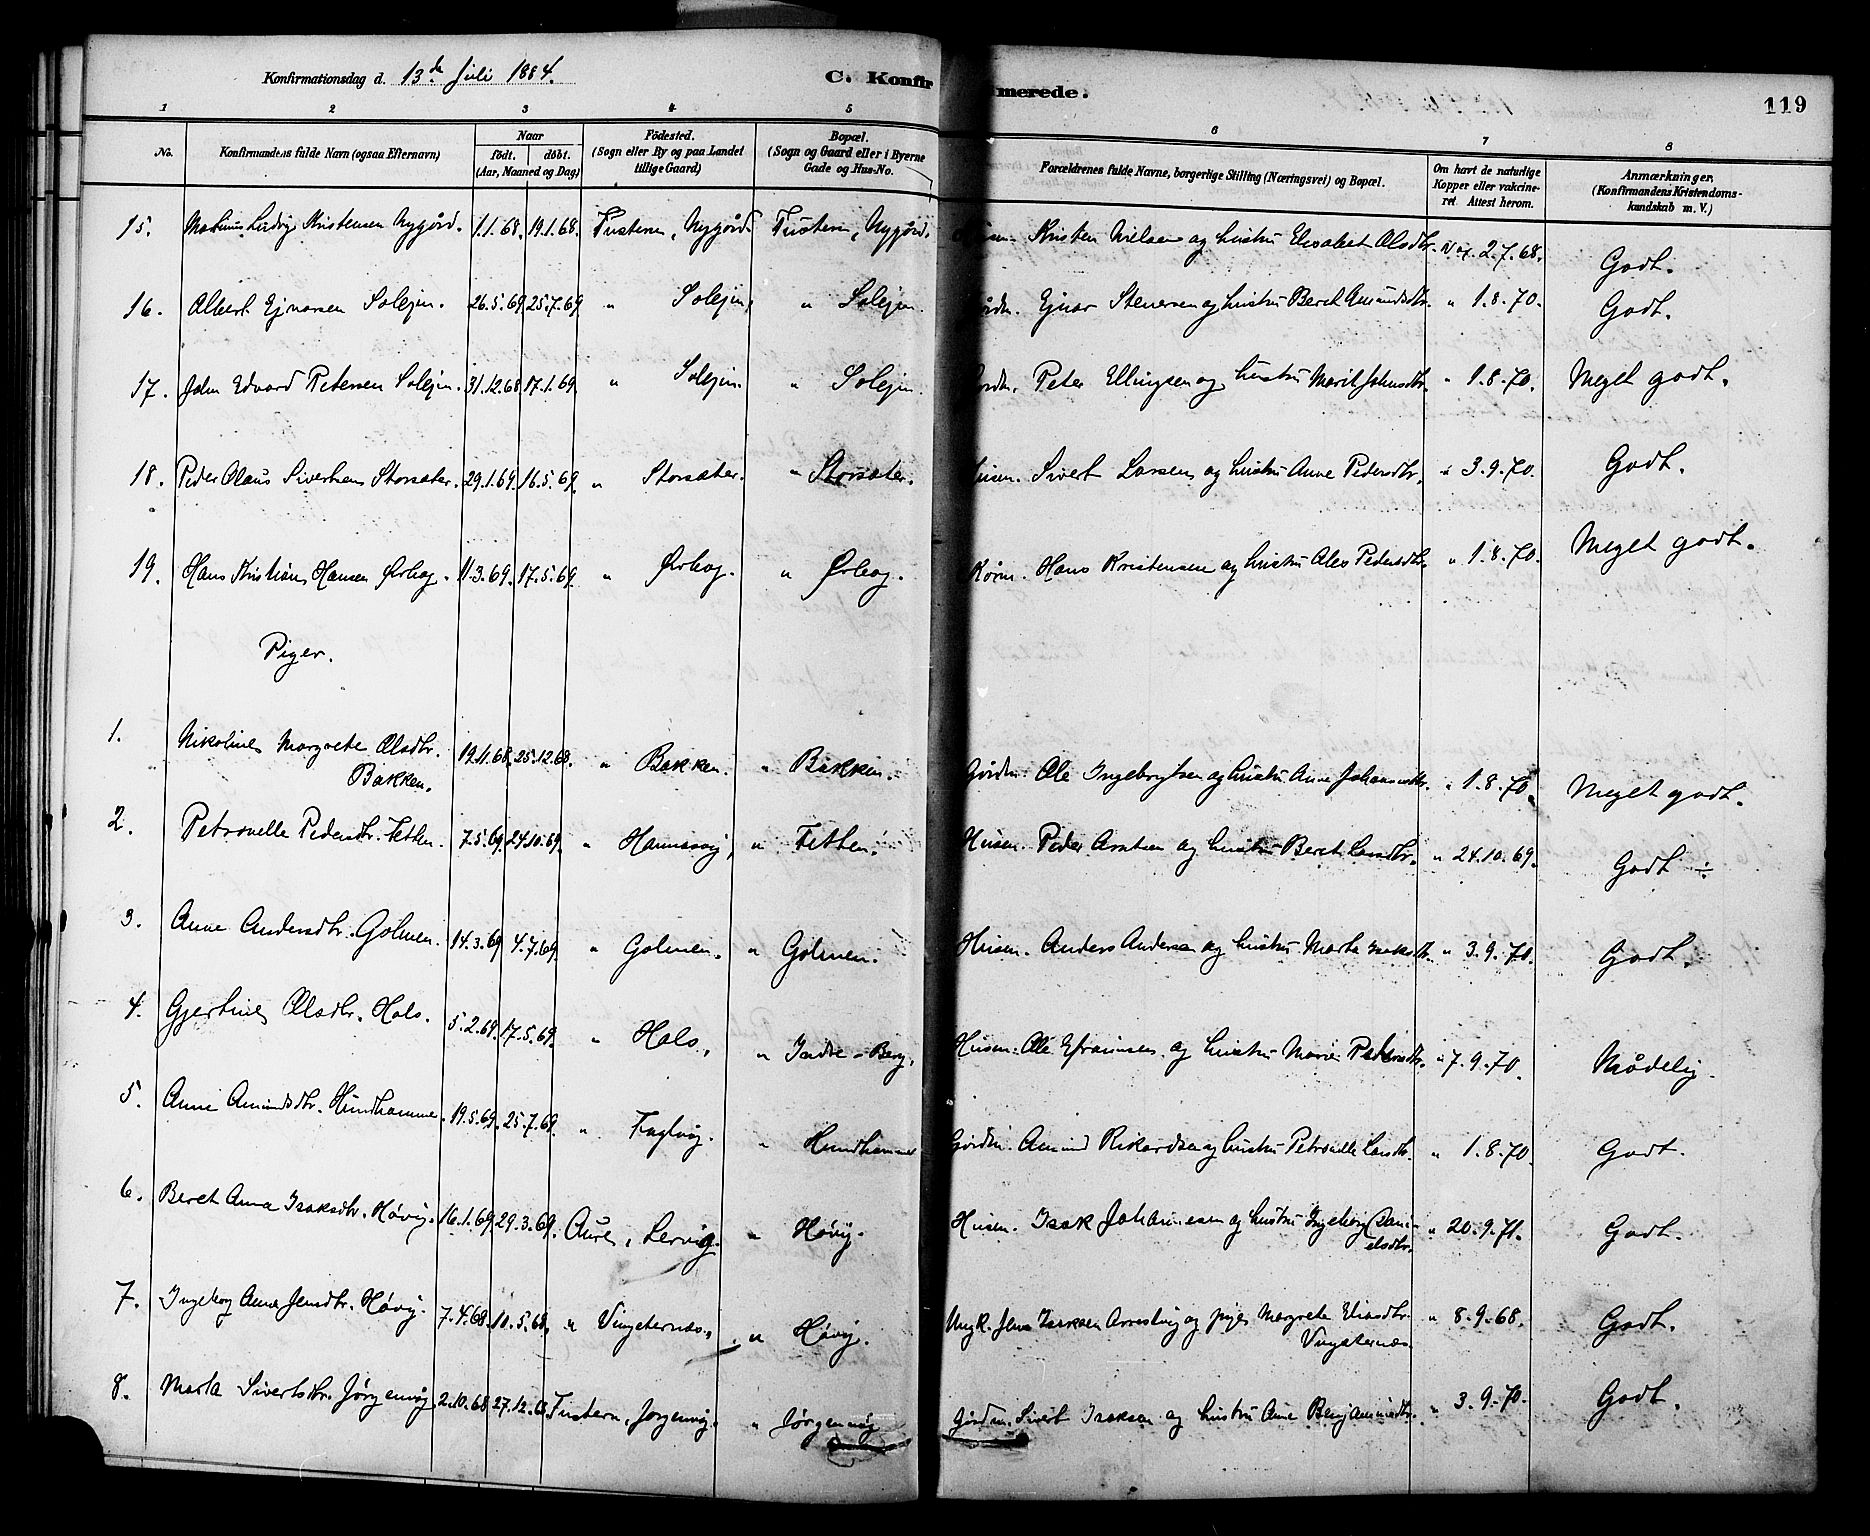 Konfirmationsdag d. 13de Juli 1884.
C. Konfirmerede.
119
1 2 3 4 5 6 7 8
No.
Konfirmandens fulde Navn (ogsaa Efternavn)
Naar
födt. döbt.
(Aar, Maaned og Dag)
Födested.
(Sogn eller By og paa Landet
tillige Gaard)
Bopæl.
(Sogn og Gaard eller i Byerne
Gade og Hus-No.
Forældrenes fulde Navne, borgerlige Stilling (Næringsvei) og Bopæl.
Om havt de naturlige
Kopper eller vakcine-
ret. Attest herom.
Anmærkninger.
(Konfirmandens Kristendoms-
kundskab m. V.)
15. Ludvig Kristensen Nygård. 1.1.68. 19.1.68. Tustern, Nygård. Tustern, Nygård. Kristen Nielsen og hustru Elisabet Olsdtr. Vax. 2.7.68. Godt.
16. Albert Ejnarsen Solejm. 26.5.69. 25.7.69 " Solejm, " Solejm. Gårdm. Ejnar Stenersen og hustru Beret Amundsdtr. " 1.8.70. Godt.
17. John Edvard Petersen Solejm. 31.12.68. 17.1.69. " Solejm. " Solejm. Gårdm. Peter Ellingsen og hustru Marit Johnsdtr. " 1.8.70. Meget godt.
18. Peder Olaus Sivertsen Storsæter. 29.1.69. 16.5.69. " Storsæter. " Storsæter. Husm. Sivert Larsen og hustru Anne Pedersdtr. " 3.9.70. Godt.
19. Hans Kristian Hansen Ørbog. 11.3.69. 17.5.69 " Ørbog. " Ørbog. Hans Kristensen og hustru Ales Pedersdtr. " 1.8.70. Meget godt.
Piger.
1. Nikoline Margrete Olsdtr. 19.11.68. 25.12.68. " Bakken. " Bakken. Gårdm. Ole Ingebrigtsen og hustru Anne Johannesdtr. " 1.8.70. Meget godt.
Bakken.
2. Petronelle Pedersdtr. Fetten. 7.5.69. 24.10.69. " Hamnsvig, " Fetten. Husm. Peder Arntsen og hustru Beret Larsdtr. " 24.10.69. Godt ÷
3. Anne Andersdtr. Golmen. 14.3.69 4.7.69. " Golmen. " Golmen. Husm. Anders Andersen og hustru Marta Isaksdtr. " 3.9.70. Godt.
4. Gjertine Olsdtr. Hals. 5.2.69. 17.5.69. " Hals, " Indre-Berg, Husm. Ole Efraimsen og hustru Marie Pedersdtr. " 7.9.70. Mådelig.
5. Anne Amundsdtr. Hundhammer. 19.5.69. 25.7.69. " Fuglvåg. " Hundhammer Gårdm. Amund Rikardsen og hustru Petronelle Larsdtr. " 1.8.70. Godt.
6. Beret Anna Isaksdtr. Høvig. 16.1.69. 29.3.69. Aure, Lervig. " Høvig. Husm. Isak Johannesen og hustru Ingeborg Dani- " 20.9.71. Godt.
elsdtr.
7. Ingeborg Anne Jensdtr. Høvig. 7.4.68. 10.5.68. " Vingsternæs. " Høvig. Ungk. Jens Isaksen og pige Margrete Eliasdtr. " 8.9.68. Godt.
Vingsternæs
8. Marta Sivertsdtr. Jørgenvåg. 2.10.68. 27.12.68. Tustern, Jørgenvåg. " Jørgenvåg Gårdm. Sivert Isaksen og hustru Anne Benjaminsdtr. " 3.9.70. Godt.